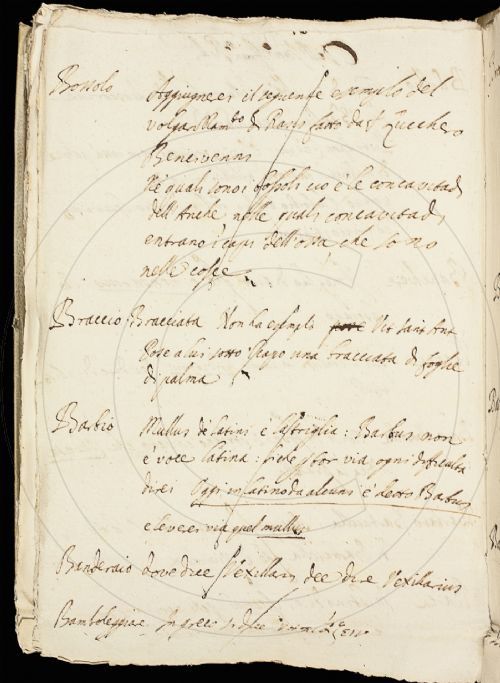 Bossolo Aggiugnerei il seguente esempio del
volgarizzam.to di Rasis fatto da S. Zucchero
Bencivenni
Ne quali sono i bossoli cio è le concavitadi
dell'Anche nelle quali concavitadi
entrano i capi dell'ossa che sono
nelle cosce
Braccio, Bracciata Non ha esempli Vit Sant Ant
Pose a lui sotto il capo una bracciata di foglie
di palma
Barbio Mullus de latini è la triglia: Barbus non
è voce latina: si che per tor via ogni difficultà
direi Oggi in latino da alcuni è detto Barbus
e leverei via quel mullus
Banderaio dove dice Vexillaris dee dire Vexillarius
Bamboleggiare In greco si dice